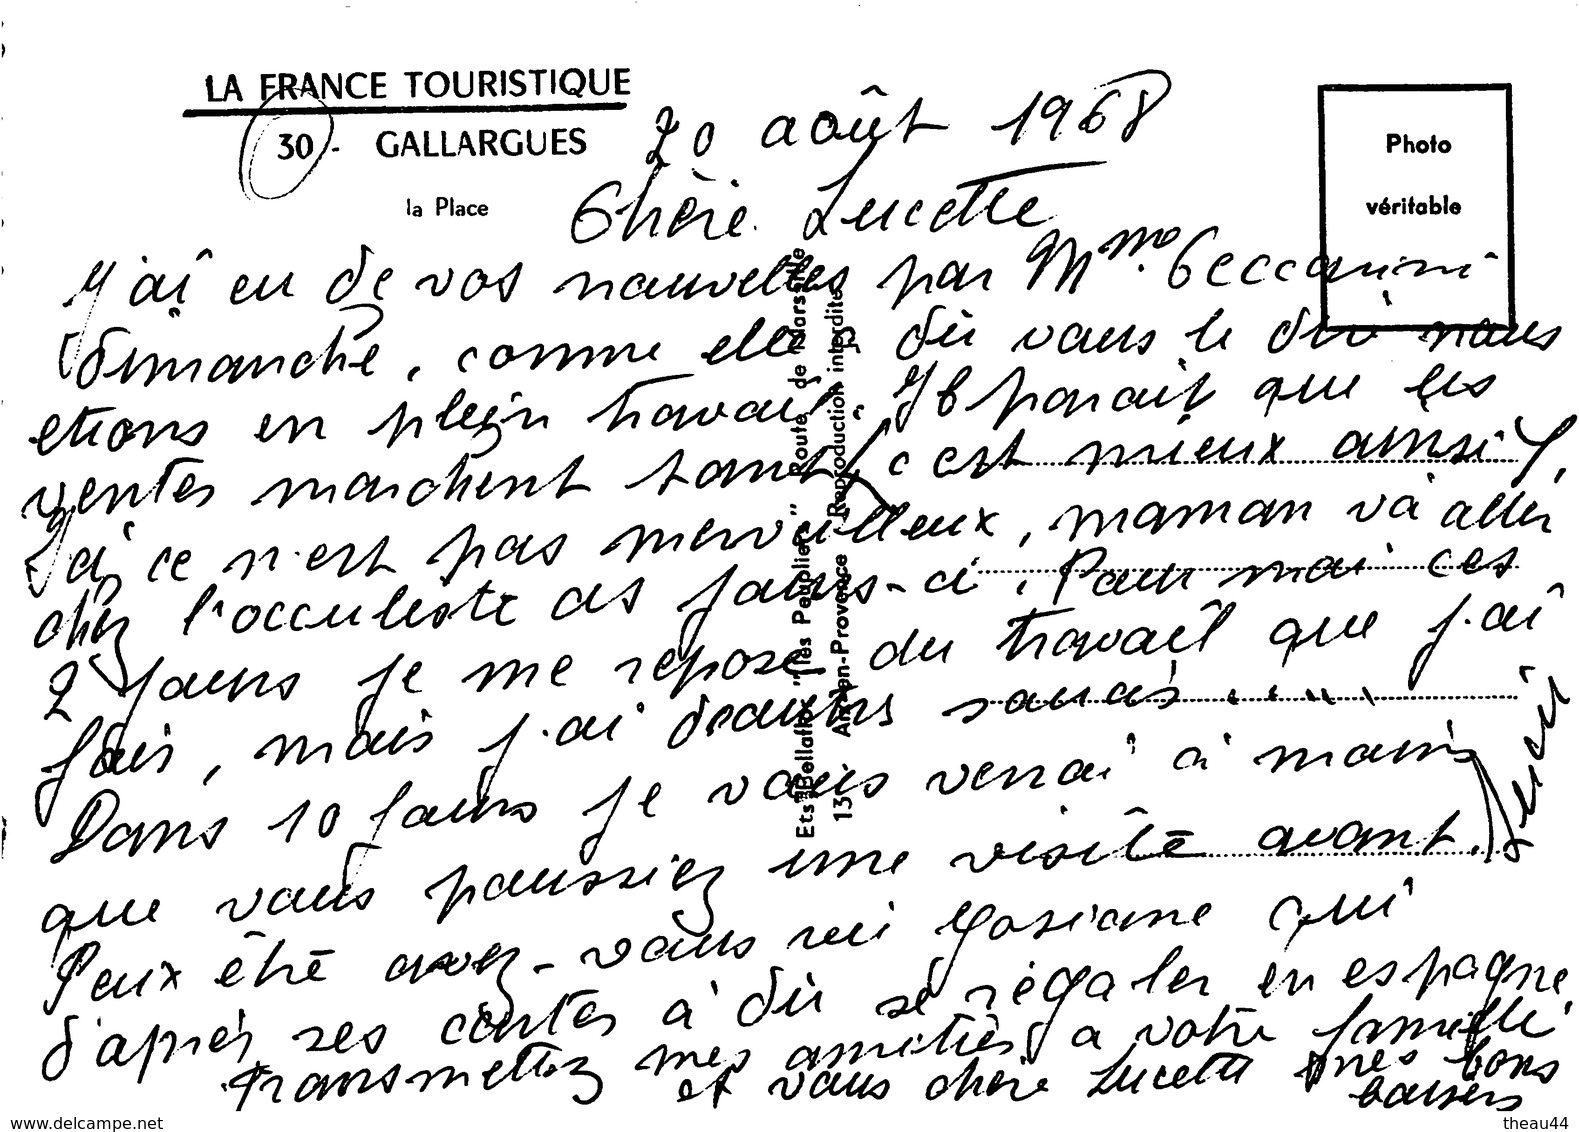 LA FRANCE TOURISTIQUE
30 - GALLARGUES
la Place
Photo
véritable
20 août 1968
Chère Lucette
J'ai eu de vos nouvelles par Mme Ceccarini
dimanche, comme elle a dû vous le dire nous
etions en plein travail. Il parait que les
ventes marchent tant (c'est mieux ainsi),
ici ce n'est pas merveilleux, maman va aller
chez l'occuliste ces jours-ci. Pour moi ces
2 jours je me repose du travail que j'ai
fais, mais j'ai d'autres soucis . . . . .
Dans 10 jours je vous verrai à moins
que vous paussiez une visite avant.
Peux être avez-vous vu Josiane qui
d'après ses cartes à dû se régaler en espagne
transmettez mes amitiés a votre famille
et vous chère Lucette mes bons
baisers
Ets "Bellaflox" "les Peupliers" Route de Marseille
13 - Aix-en-Provence - Reproduction interdite
www.delcampe.net
theau44